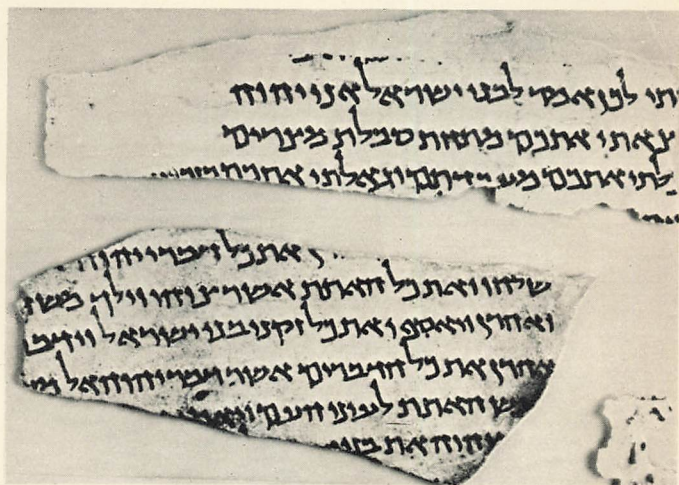 תי לכן אמר לבני ישראל אני יהוה
צאתי אתכם מתחת סבלת מצרים
לתי אתכם מעבדתם וגאלתי אתכם
את כל דברי יהוה
שלחו ואת כל האתת אשר צוהו וילך משה
ואהרן ויאספו את כל זקני בני ישראל וידבר
אהרן את כל הדברים אשר דבר יהוה אל
ש האתת לעיני העם
יהוה את בני